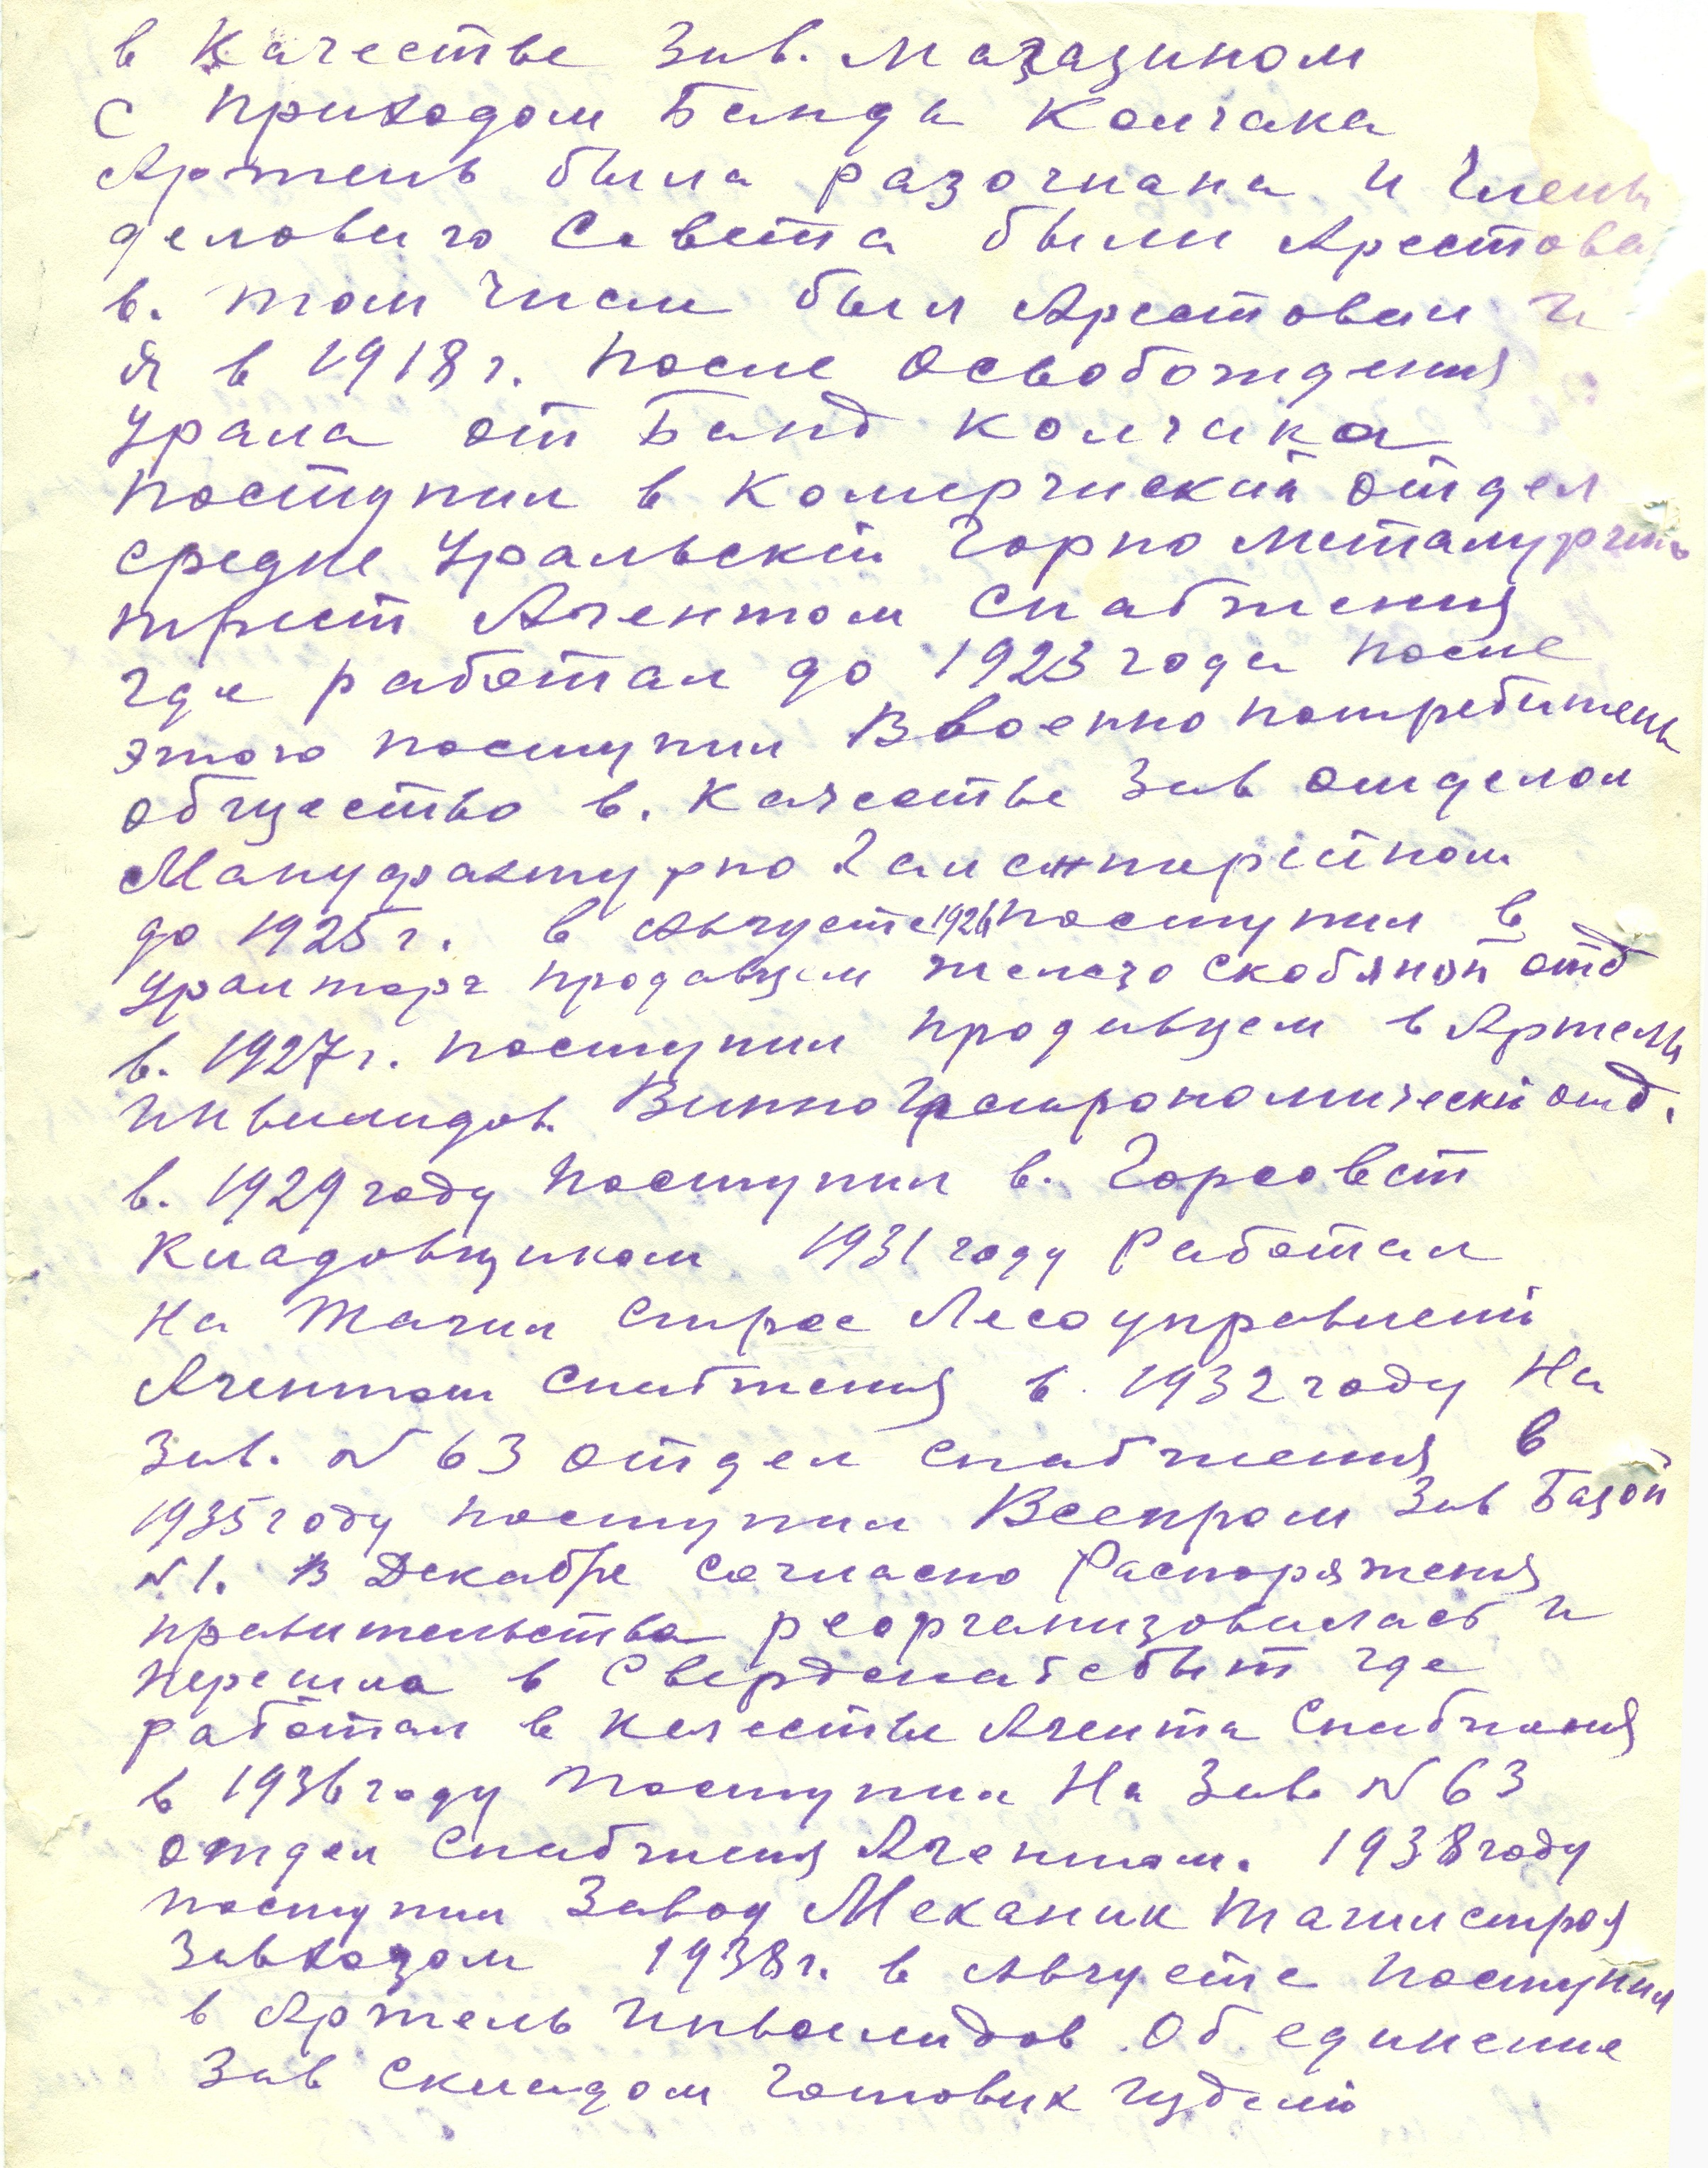 в Качестве Зав. Магазином
с приходом Банда Колчака
Артель была разогнана и Члены
делового Совета были Арестова
в. том числи был Арестован и
я в 1918 г. после Освобождения
Урала от Банд Колчака
поступил в Комерчиский отдел
средне Уральскій Горно Металургич
трест Агентом Снабжения
где работал до 1923 года после
этого поступил В военно потребитель
общество в. Качестве Зав отделом
Мануфактурно Галентерейном
до 1925 г. в Августе 1926 поступил в
Уралторг продавцем железо скобяной отд
в. 1927 г. поступил продавцем в Артель
Инвалидов. Винно Гастрономическій отд.
в. 1929 году поступил в. Горсовет
Кладовщиком 1931 году Работал
На Тагил строе Лесоуправлений
Агентом снабжения в. 1932 году На
Зав. N 63 отдел снабжения в
1935 году поступил Всепром Зав Базой
N 1. В Декабре согласно Распоряжения
правительства реорганизовалась и
перешла в Свердснабсбыт где
работал в качестве Агента Снабжения
в 1936 году поступил На Зав. N 63
отдел Снабжения Агентом. 1938 году
поступил Завод Механик Тагилстроя
Завхозом 1938 г. в Августе поступил
в Артель Инвалидов Об единение
Зав Складом Готовых Изделий